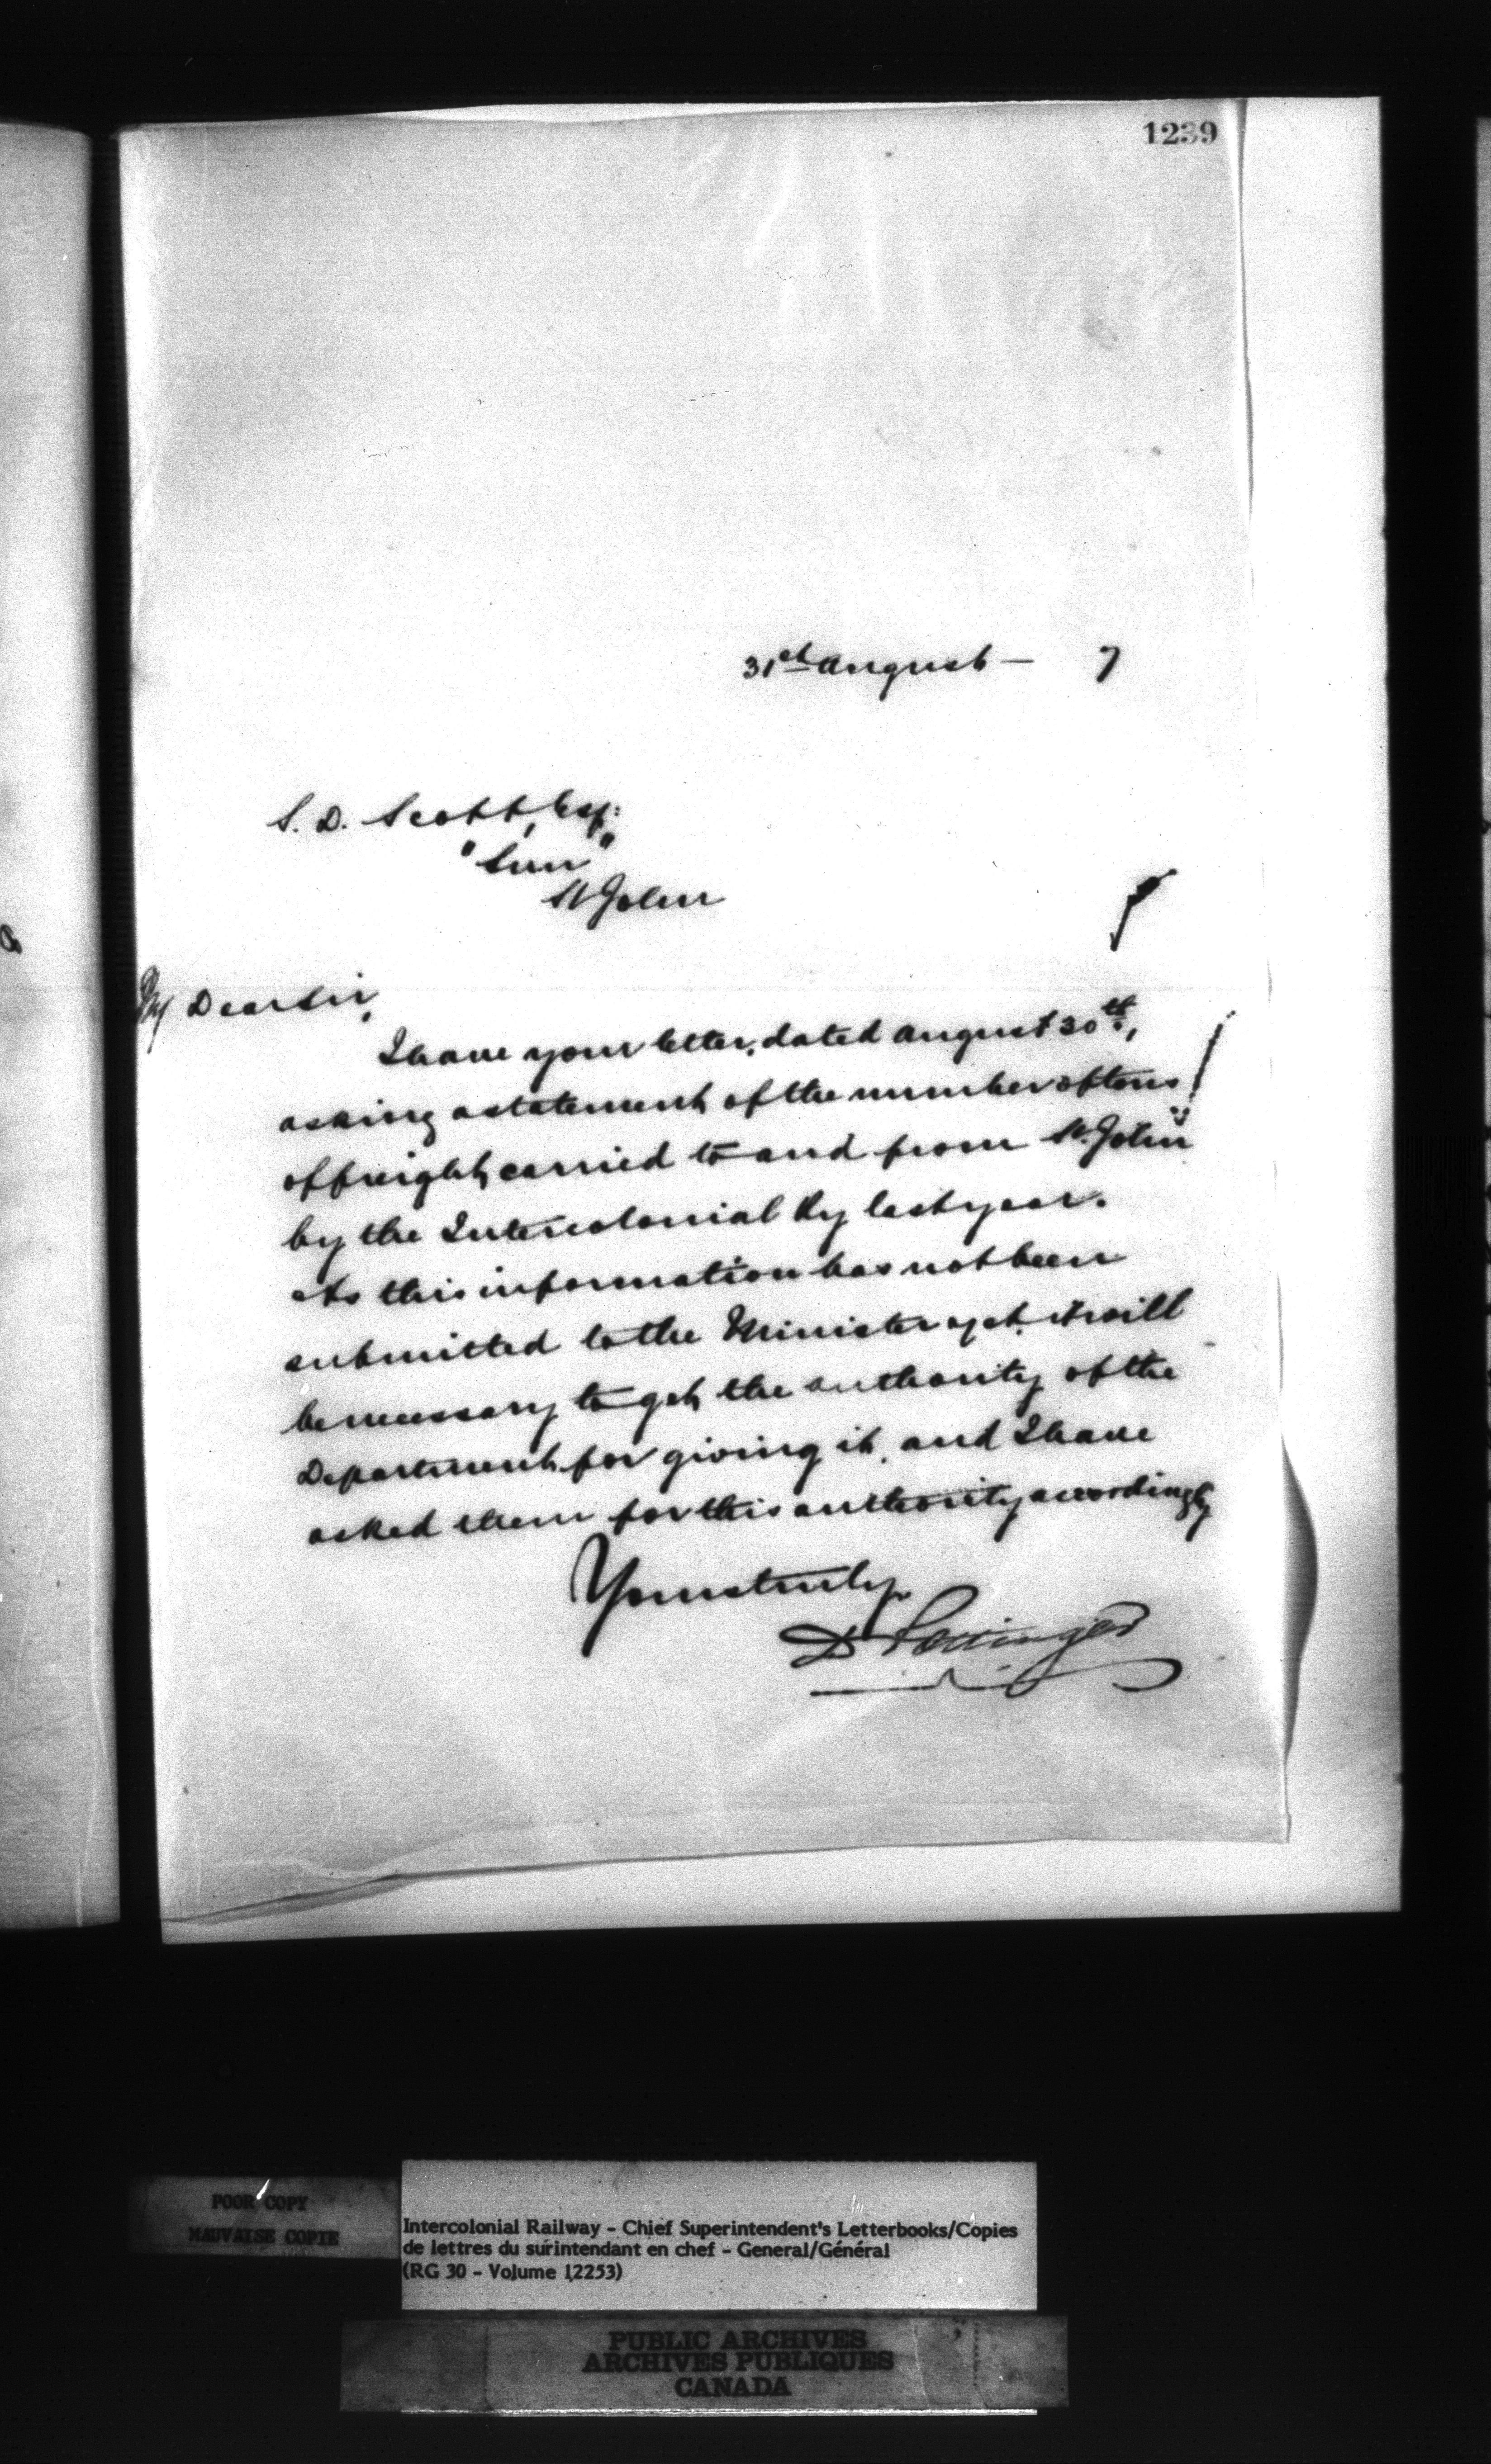 1239
31st August — 7
S. D. Scott, Esq:
"Sun"
St John
My Dear Sir,
I have your letter, dated August 30th,
asking a statement of the number of tons
of freight carried to and from St. John
by the Intercolonial Ry last year.
As this information has not been
submitted to the Minister yet, it will
be necessary to get the authority of the
Department for giving it, and I have
asked them for this authority accordingly
Yours truly,
D Pottinger
POOR COPY
MAUVAISE COPIE
Intercolonial Railway - Chief Superintendent's Letterbooks/Copies
de lettres du surintendant en chef - General/Général
(RG 30 - Volume 12253)
PUBLIC ARCHIVES
ARCHIVES PUBLIQUES
CANADA